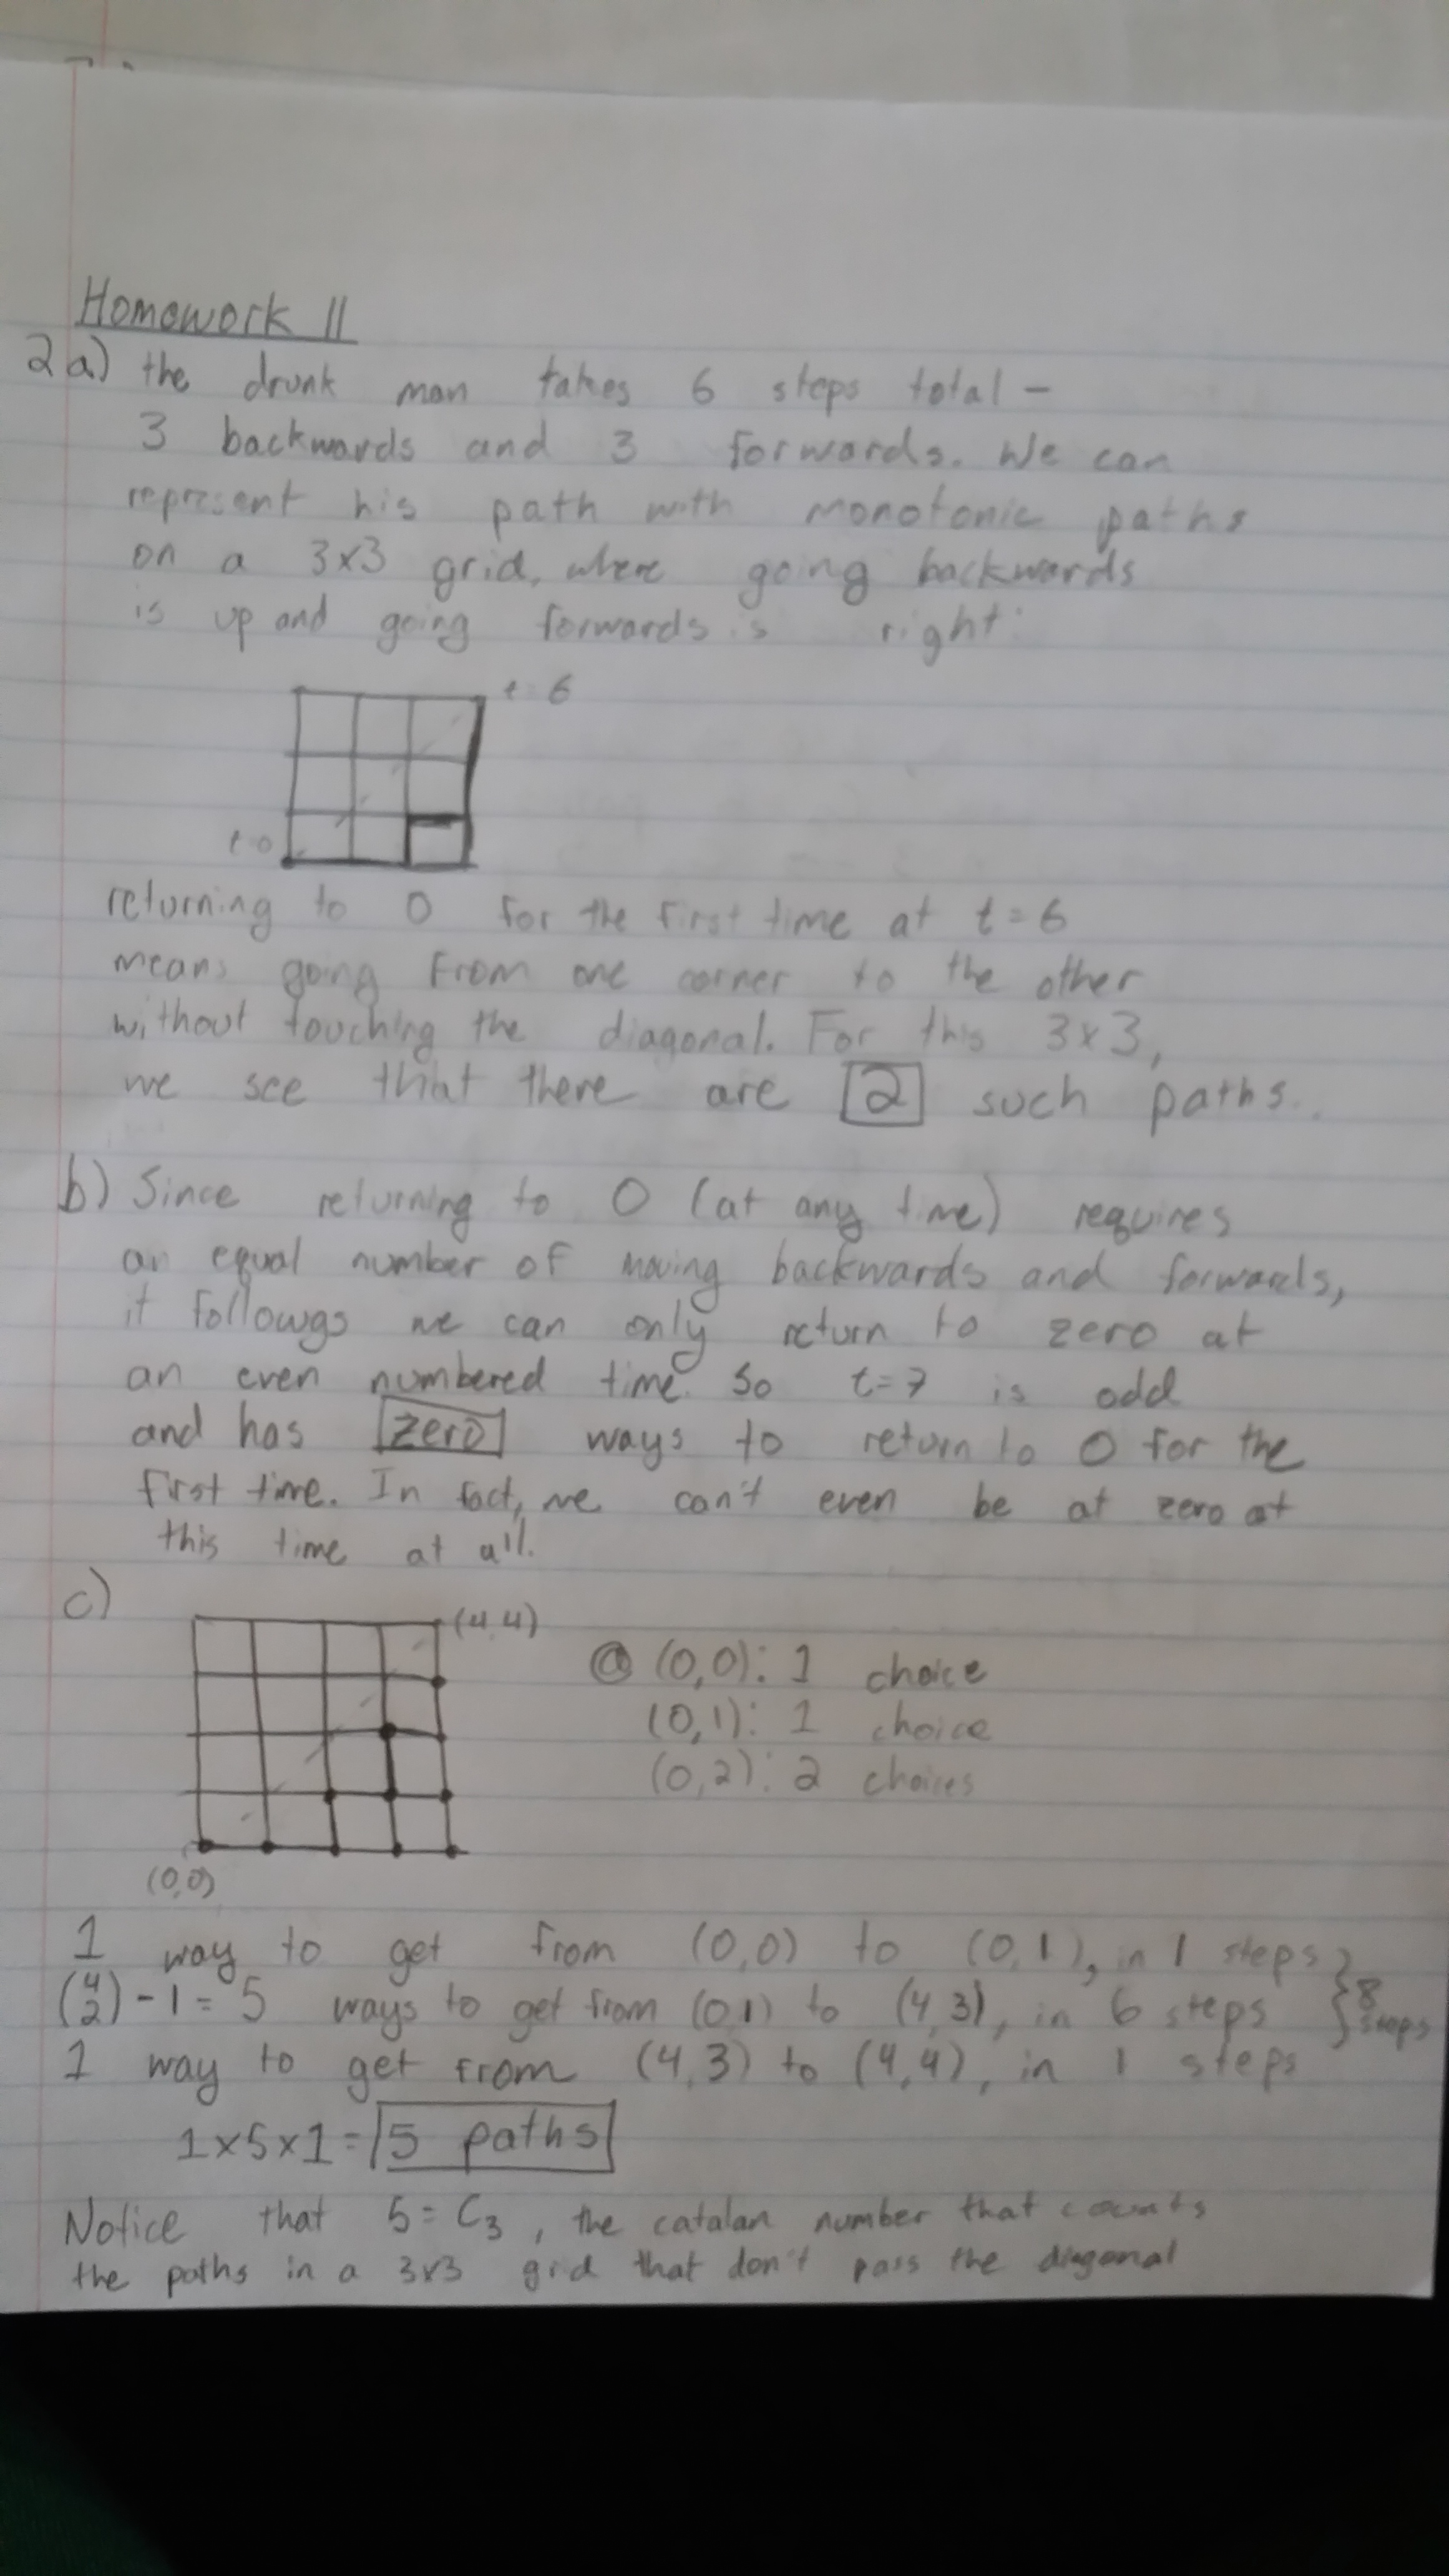 Homework 11
2a) the drunk man takes 6 steps total -
3 backwards and 3 forwards. We can
represent his path with monotonic paths
on a 3x3 grid, where going backwards
is up and going forwards is right:
t=6
t=0
returning to 0 for the first time at t=6
means going from one corner to the other
without touching the diagonal. For this 3x3,
we see that there are 2 such paths.
b) Since returning to 0 (at any time) requires
an equal number of moving backwards and forwards,
it followgs we can only return to zero at
an even numbered time. So t=7 is odd
and has zero ways to return to 0 for the
first time. In fact, we can't even be at zero at
this time at all.
c)
(4,4)
@ (0,0): 1 choice
(0,1): 1 choice
(0,2): 2 choices
(0,0)
1 way to get from (0,0) to (0,1), in 1 steps
(4 2) - 1 = 5 ways to get from (0,1) to (4,3), in 6 steps } 8 steps
1 way to get from (4,3) to (4,4), in 1 steps
1x5x1 = 5 paths
Notice that 5 = C3, the catalan number that counts
the paths in a 3x3 grid that don't pass the diagonal